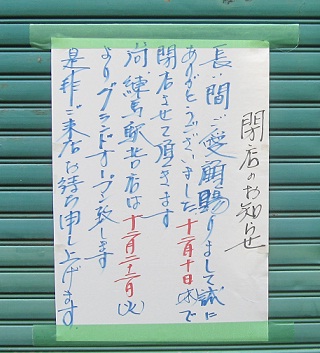 閉店のお知らせ
長い間ご愛顧賜りまして誠に
ありがとうございました十二月十日(木)で
閉店させて頂きます
尚練馬駅北口店は十二月二十二日(火)
よりグランドオープン致します
是非ご来店お待ち申し上げます